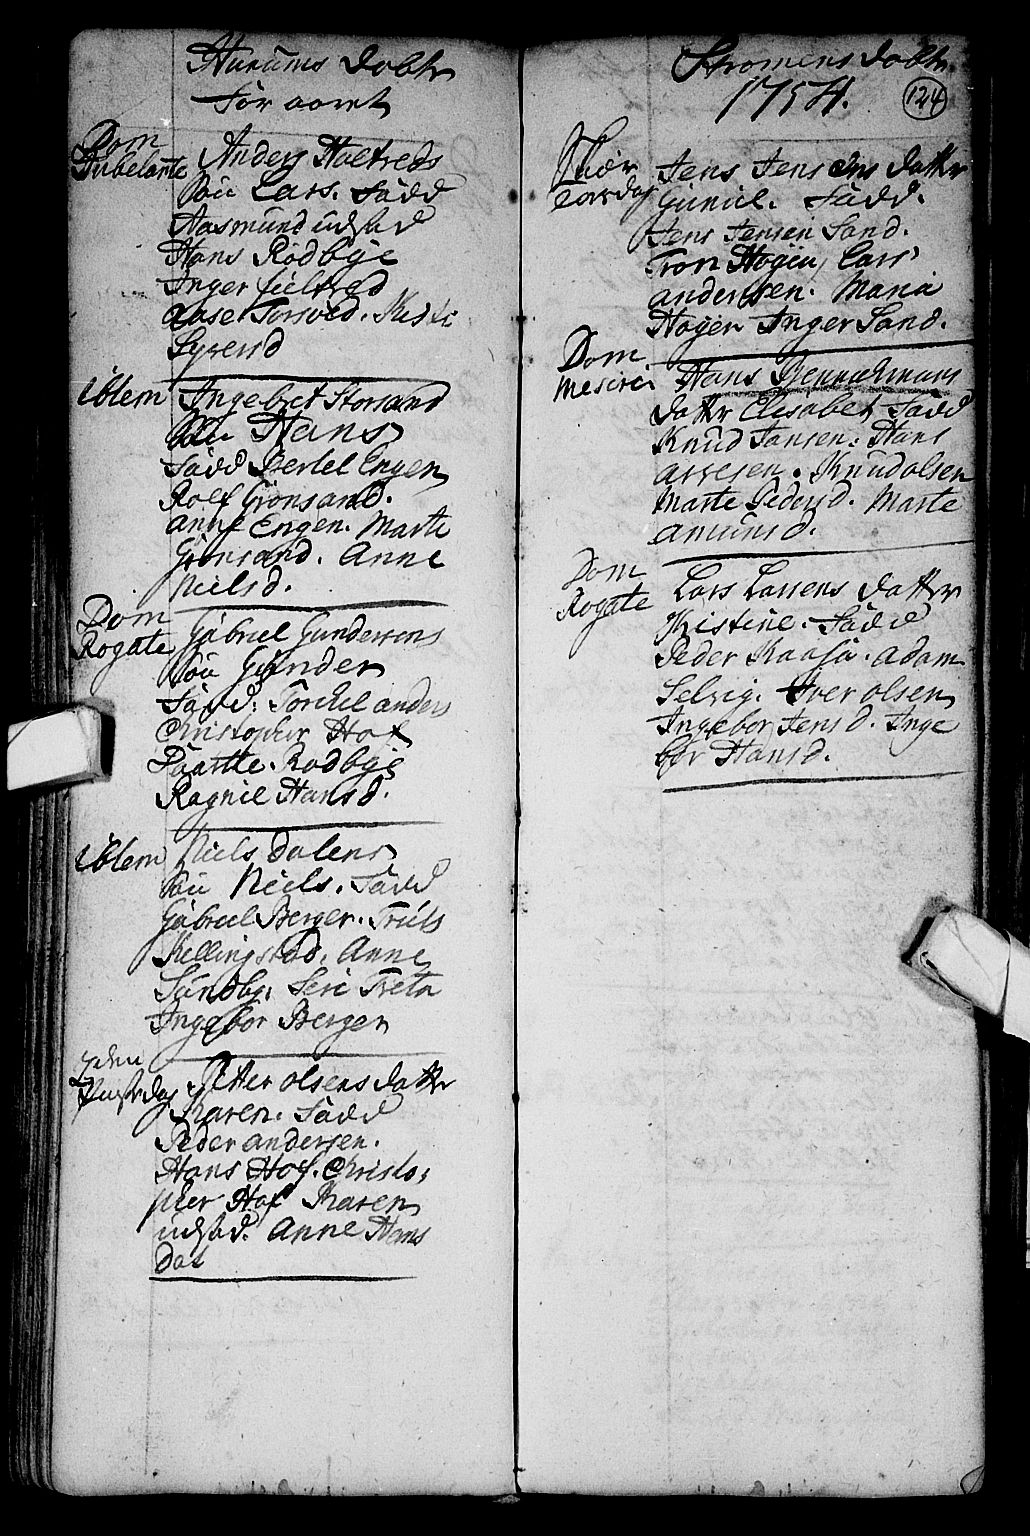 Hurums Dobte
for aaret
Dom
Jubelate
Anders Holtveds
Søn Lars. Fadd
Aasmund udstad
Hans Rødbye
Inger
Aase Torsved. Kisti
Syversd
ibtem
Ingebret Storsand
Søn Hans
Fadd Bertel Engen
Rolf Grønsand.
anne Engen. Marte
Grønsand. Anne
Nielsd.
Dom
Rogate
Gabriel Gundersens
Søn Gunder
Fadd: Torkel anders
Christopher Hof
Rødbye
Ragnil Hansd.
ibtem
Niels Dalens
Søn Niels. Fadd
Gabriel Berger. Truls
Kellingstad. Anne
Sundby. Seri Treta
Ingebor Berger
Petter olsens datter
Karen. Fadd
Peder andersen.
Hans Hof. Christo:
pher Hof Karen
udstad. Anne Hans
Dat
Strømens Dobte
1754.
124
Skier
torsdag
Jens Jensens datter
Guniel. Fadd.
Jens Jensen Sand.
Tron Høgen, Lars
andersen. Maria
Høgen Inger Sand.
Dom
Meserei
Hans
datter Elisabet, Fadd
Knud Jansen. Hans
arvesen. Knud olsen
Marte Pedersd. Marte
amunsd.
Dom
Rogate
Lars Larsens datter
Kristine. Fadd
Peder Kaasa. adam
Selvig. Iver olsen
Ingebor Jensd. Inge
bor Hansd.